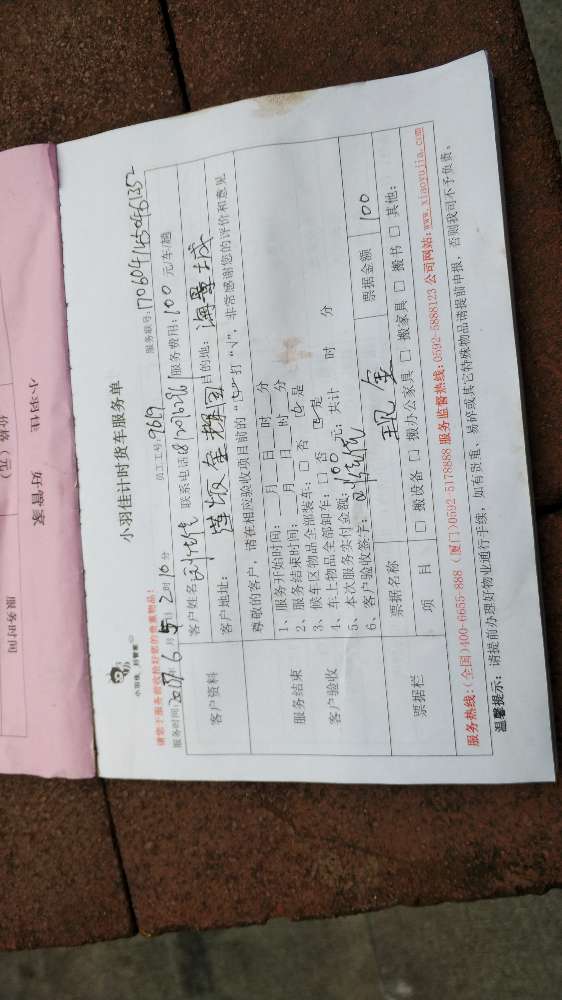 小羽佳计时货车服务单
小羽佳，好管家
服务联号：170604165046352
请您于服务前收检好您的贵重物品！
服务时间：2017年6月5日2时10分 员工工号：9619 服务费用：100元/车/趟
客户资料
客户姓名： 联系电话
客户地址： 目的地：海景城
尊敬的客户，请在相应验收项目前的“□”打“√”，非常感谢您的评价和意见
服务结束
客户验收
1、服务开始时间：月 日 时 分
2、服务结束时间：月 日 时 分
3、候车区物品全部装车：□ 否 ☑ 是
4、车上物品全部卸车：□ 否 ☑ 是
5、本次服务实付金额：100元；共计 时 分
6、客户验收签字：
票据栏
票据名称 现金 票据金额 100
项 目 □ 搬设备 □ 搬办公家具 □ 搬家具 □ 搬书 □ 其他：
服务热线：（全国）400-6655-888（厦门）0592-5178888 服务监督热线：0592-5888123 公司网站：www.xiaoyujia.com
温馨提示：请提前办理好物业通行手续，如有贵重、易碎或其它特殊物品请提前申报，否则我司不予负责。
小羽佳 好管家
价格（元）
服务时间